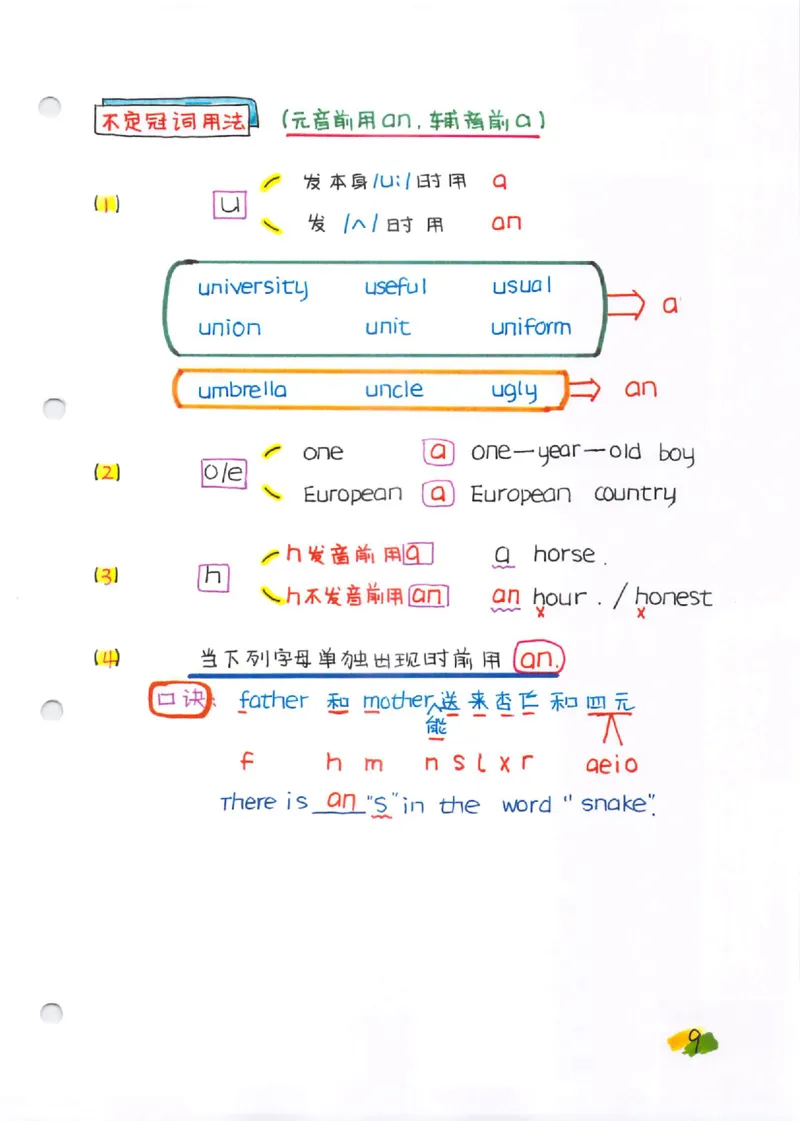 不定冠词用法 (元音前用an,辅音前a)
(1) u 发本身/u:/时用 a
发 /ʌ/ 时用 an
university useful usual
union unit uniform ⇒ a
umbrella uncle ugly ⇒ an
(2) o/e one a one—year—old boy
European a European country
(3) h h发音前用a a horse.
h不发音前用an an hour. / honest
(4) 当下列字母单独出现时前用 an.
口诀: father 和 mother能送来杏仁和四元
f h m n s l x r aeio
There is an "s" in the word "snake".
9